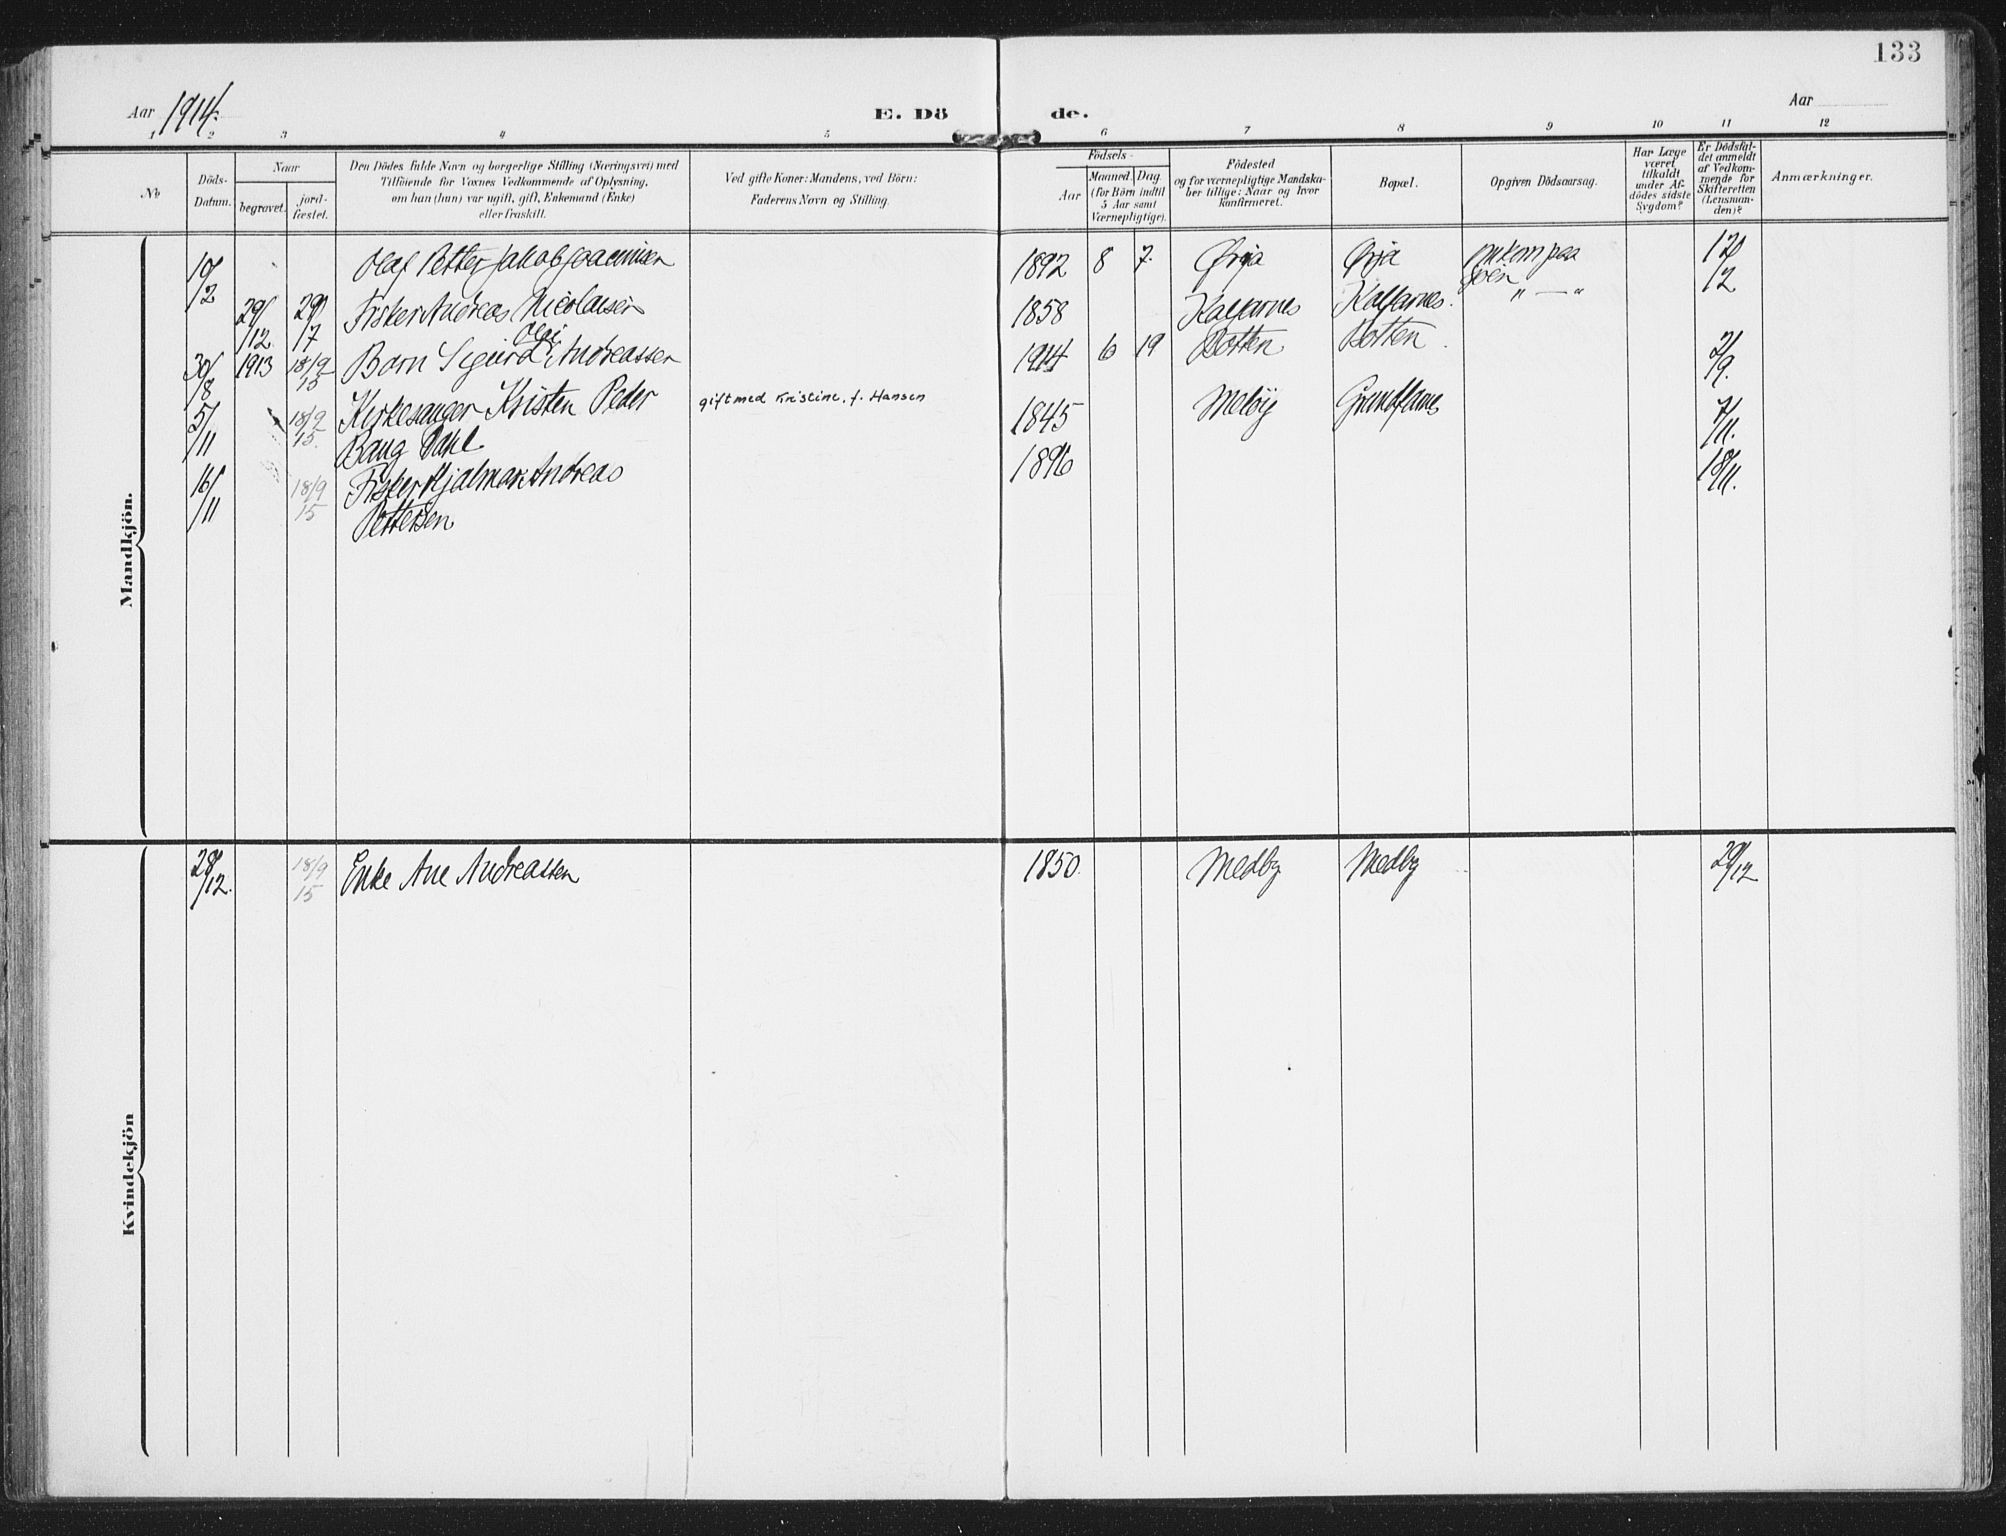 133
Aar 1914.
E. Dö de.
Aar
1 2 3 4 5 6 7 8 9 10 11 12
No
Döds-
Datum.
Naar
begravet.
jord-
fæstet.
Den Dödes fulde Navn og borgerlige Stilling (Næringsvei) med
Tilföiende for Voxnes Vedkommende af Oplysning,
om han (hun) var ugift, gift, Enkemand (Enke)
eller fraskilt.
Ved gifte Koner: Mandens, ved Börn:
Faderens Navn og Stilling.
Födsels-
Aar
Maaned.
Dag.
(for Börn indtil
5 Aar samt
Værnepligtige).
Födested
og for værnepligtige Mandska-
ber tillige: Naar og hvor
konfirmeret.
Bopæl.
Opgiven Dödsaarsag.
Har Læge
været
tilkaldt
under Af-
dödes sidste
Sygdom?
Er Dödsfal-
det anmeldt
af Vedkom-
mende for
Skifteretten
(Lensman-
den)?
Anmærkninger.
Mandkjön.
10/2 Olaf Petter Jakob Joakimsen 1892 8 7. Ørja Ørja omkom paa 12/2
Søen
29/12 1913 29/7 Fisker Andreas Nicolaisen 1858 Kalfarnes Kalfarnes. " — "
30/8 18/9 15 Barn Sigurd Olai Andreassen 1914 6 19 Botten Botten. 2/9.
5/11 18/9 15. Kirkesanger Kristen Peder gift med Kristine, f. Hansen 1845 Meløy 7/11.
Bang Dahl
16/11 18/9 15 Fisker Hjalmar Andreas 1896 18/11.
Pettersen
Kvindekjön
28/12. 18/9 15 Enke Ane Andreassen 1850. Medby Medby 29/12